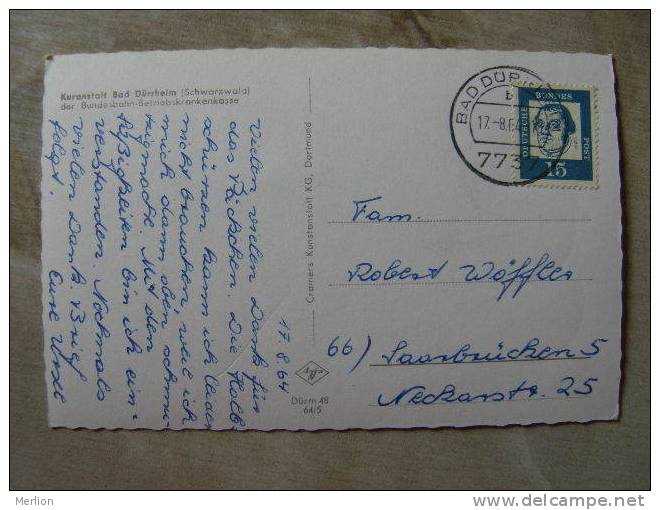 Kuranstalt Bad Dürrheim (Schwarzwald)
der Bundesbahn-Betriebskrankenkasse
17.8.64
Vielen vielen Dank für
das Päckchen. Die Halb-
schürzen kann ich leider
nicht brauchen weil ich
mich dann oben schmu-
tzig mache. Mit den
Süßigkeiten bin ich ein-
verstanden. Nochmals
vielen Dank. Brief
folgt. Eure
Cramers Kunstanstalt KG, Dortmund
Dürrh 48
64/5
BAD DÜRR
b
17.-8.64
7737
DEUTSCHE
BUNDES
POST
15
Fam.
Robert Wöffler
66) Saarbrücken 5
Neckarstr. 25
Merlion
www.delcampe.net